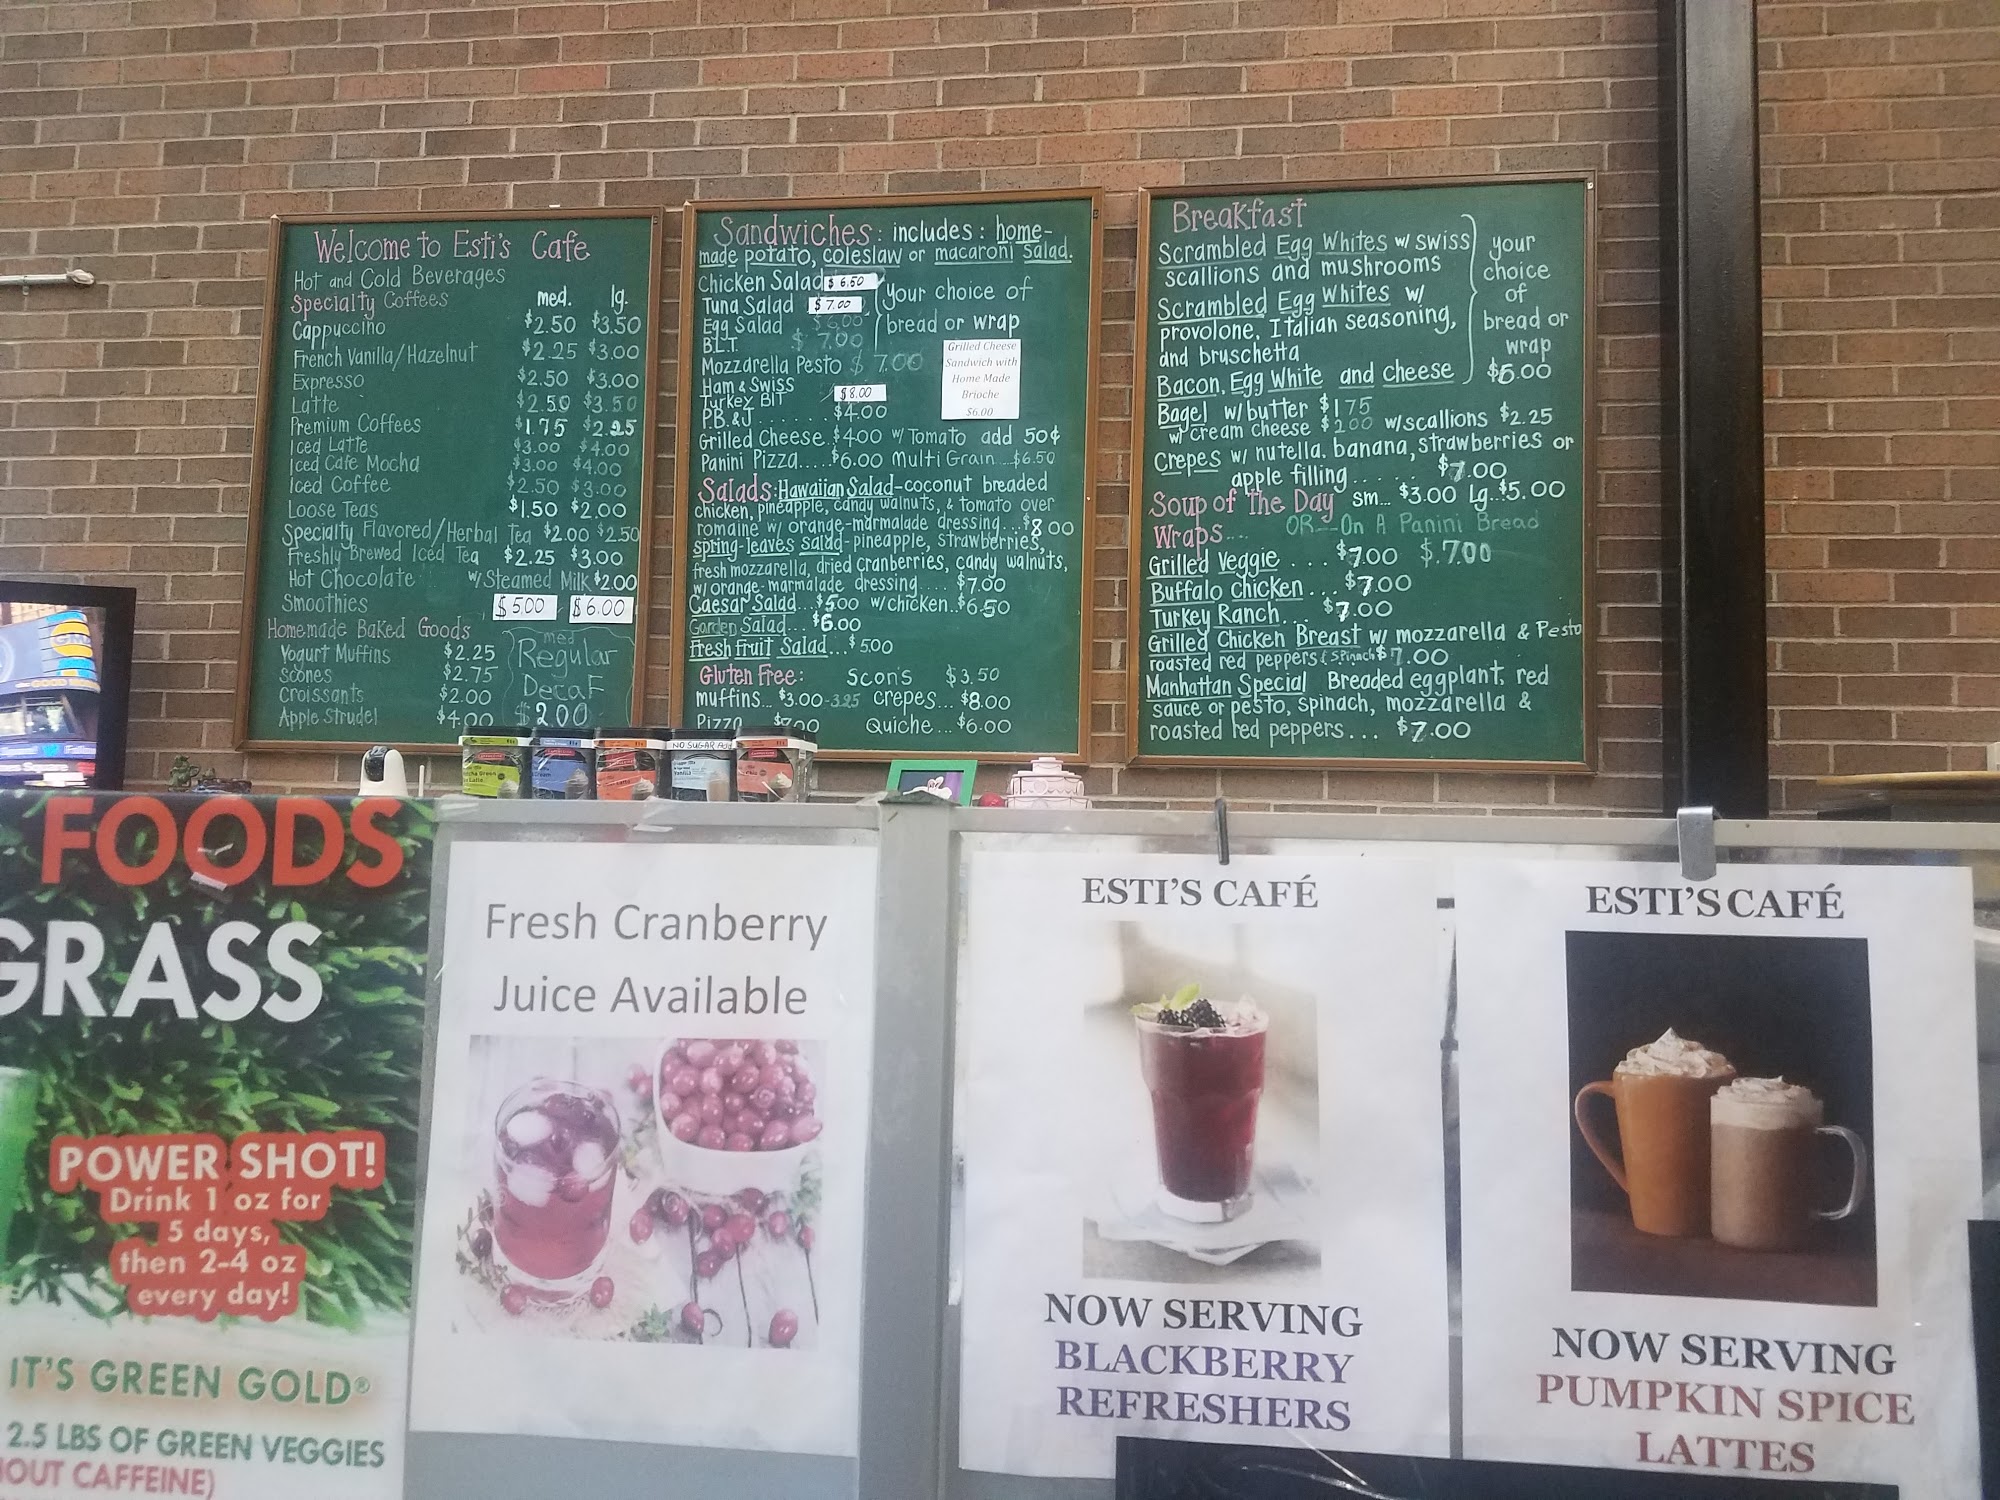 Welcome to Esti's Cafe
Hot and Cold Beverages
Specialty Coffees med. lg.
Cappuccino $2.50 $3.50
French Vanilla/Hazelnut $2.25 $3.00
Expresso $2.50 $3.00
Latte $2.50 $3.50
Premium Coffees $1.75 $2.25
Iced Latte $3.00 $4.00
Iced Cafe Mocha $3.00 $4.00
Iced Coffee $2.50 $3.00
Loose Teas $1.50 $2.00
Specialty Flavored/Herbal Tea $2.00 $2.50
Freshly Brewed Iced Tea $2.25 $3.00
Hot Chocolate w/Steamed Milk $2.00
Smoothies $5.00 $6.00
Homemade Baked Goods
Yogurt Muffins $2.25
Scones $2.75
Croissants $2.00
Apple Strudel $4.00
med
Regular
Decaf
$2.00
Sandwiches: includes: home-
made potato, coleslaw or macaroni Salad.
Chicken Salad $6.50
Tuna Salad $7.00
Egg Salad $6.00
B.L.T. $7.00
your choice of
bread or wrap
Mozzarella Pesto $7.00
Ham & Swiss
Turkey BIT $8.00
P.B.&J....... $4.00
Grilled Cheese
Sandwich with
Home Made
Brioche
$6.00
Grilled Cheese.$4.00 w/Tomato add 50¢
Panini Pizza.....$6.00 Multi Grain...$6.50
Salads: Hawaiian Salad-coconut breaded
chicken, pineapple, candy walnuts, & tomato over
romaine w/ orange-marmalade dressing...$8.00
spring-leaves salad-pineapple, strawberries,
fresh mozzarella, dried cranberries, candy walnuts,
w/orange-marmalade dressing....$7.00
Caesar Salad...$5.00 w/chicken..$6.50
Garden Salad...$6.00
Fresh Fruit Salad...$5.00
Gluten Free: Scon's $3.50
muffins...$3.00-3.25 crepes...$8.00
Pizza $7.00 Quiche...$6.00
Breakfast
Scrambled Egg Whites w/ swiss
scallions and mushrooms
Scrambled Egg Whites w/
provolone, Italian seasoning,
and bruschetta
Bacon, Egg White and cheese
your
choice
of
bread or
wrap
$6.00
Bagel w/butter $1.75
w/ cream cheese $2.00 w/scallions $2.25
Crepes w/ nutella, banana, strawberries or
apple filling..... $7.00
Soup of The Day sm...$3.00 lg...$5.00
Wraps... OR--On A Panini Bread
Grilled Veggie ... $7.00 $.7.00
Buffalo chicken ... $7.00
Turkey Ranch... $7.00
Grilled Chicken Breast w/ mozzarella & Pesto
roasted red peppers & spinach $7.00
Manhattan Special Breaded eggplant, red
sauce or pesto, spinach, mozzarella &
roasted red peppers... $7.00
NO SUGAR Add
FOODS
GRASS
POWER SHOT!
Drink 1 oz for
5 days,
then 2-4 oz
every day!
IT'S GREEN GOLD®
2.5 LBS OF GREEN VEGGIES
CAFFEINE)
Fresh Cranberry
Juice Available
ESTI'S CAFÉ
NOW SERVING
BLACKBERRY
REFRESHERS
ESTI'S CAFÉ
NOW SERVING
PUMPKIN SPICE
LATTES